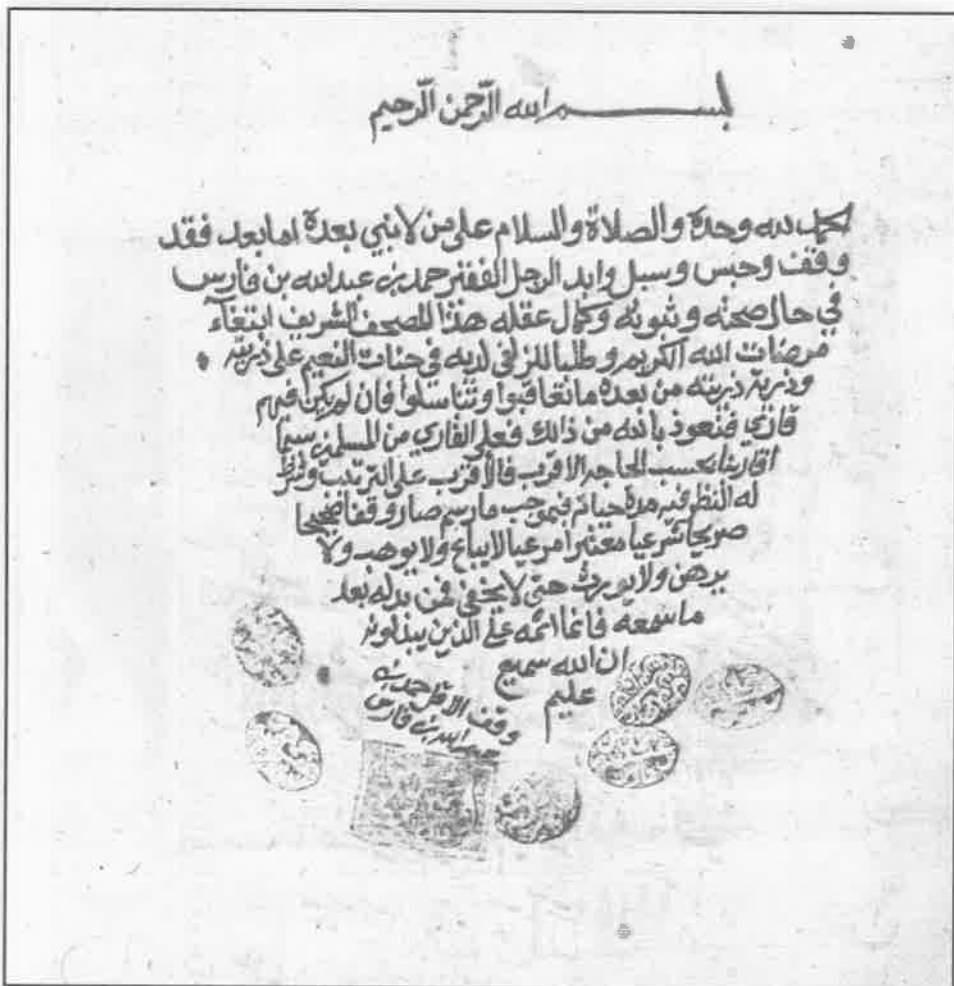 بسم الله الرحمن الرحيم
الحمد لله وحدة والصلاة والسلام على من لا نبي بعدة اما بعد فقد
وقف وحبس وسبل وابد الرجل الفقير حمد بن عبد الله بن فارس
في حال صحته وثبوته وكمال عقله هذا المصحف الشريف ابتغآء
مرضات الله الكريم وطلبا للزلفى لديه في جنات النعيم على ذريته
وذرية ذريته من بعدة ما تعاقبوا وتناسلوا فان لم يكن فيهم
قارئ فنعوذ بالله من ذالك فعلى القاري من المسلمين سيما
اقاربنا بحسب الحاجه الاقرب فالاقرب على الترتيب ونظر
له النظر فيه مدة حياته فبموجب ما رسم صار وقفا صحيحا
صريحا شرعيا معتبرا مرعيا لا يباع ولا يوهب ولا
يرهن ولا يورث حتى لا يخفى فمن بدله بعد
ما سمعه فانما اثمه على الذين يبدلونه
ان الله سميع
عليم
وقف الاقل حمد بن
عبد الله بن فارس